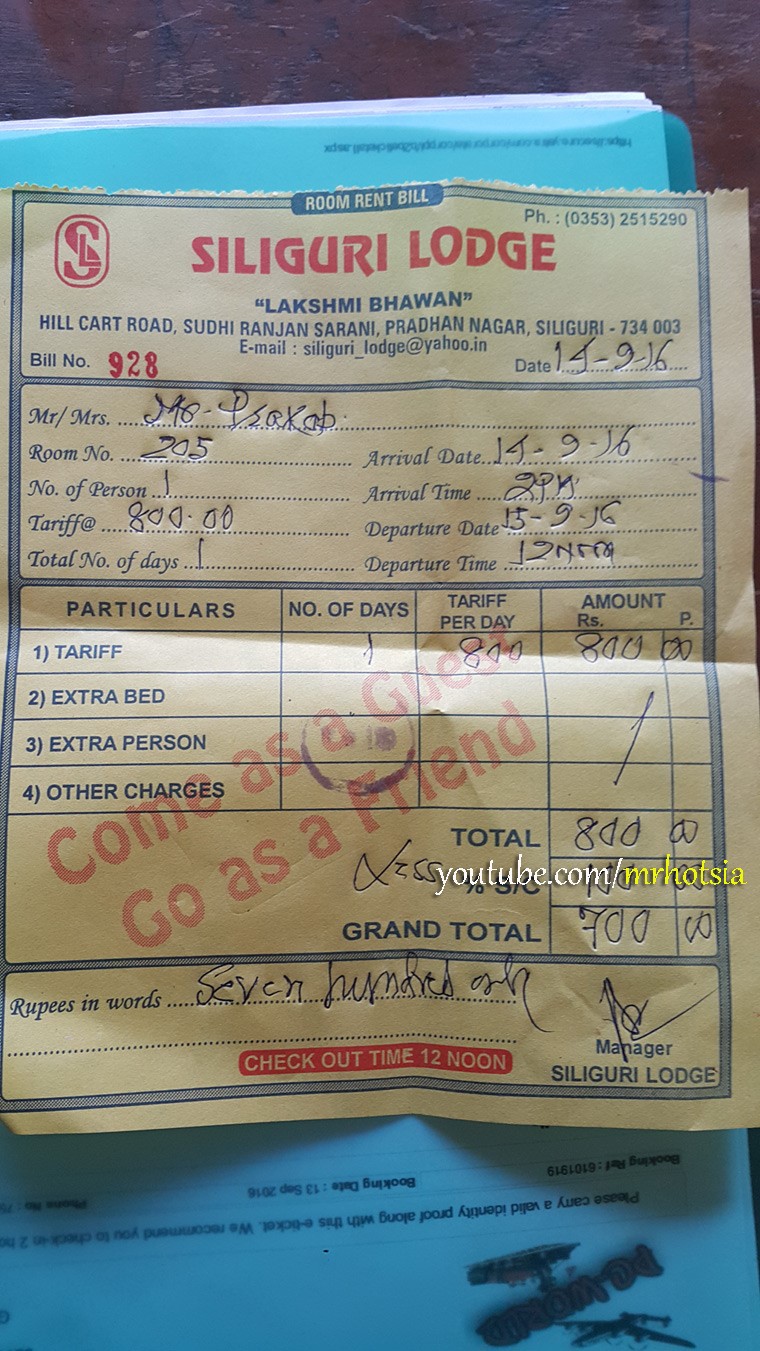 https://secure.yatra.com/corporate/corppl/b2beticketall.aspx
ROOM RENT BILL
Ph. : (0353) 2515290
SL
SILIGURI LODGE
"LAKSHMI BHAWAN"
HILL CART ROAD, SUDHI RANJAN SARANI, PRADHAN NAGAR, SILIGURI - 734 003
E-mail : siliguri_lodge@yahoo.in
Bill No. 928
Date 14-9-16
Mr/ Mrs.
Room No. 205 Arrival Date 14-9-16
No. of Person 1 Arrival Time 2PM
Tariff@ 800.00 Departure Date 15-9-16
Total No. of days 1 Departure Time 12 Noon
PARTICULARS NO. OF DAYS TARIFF PER DAY AMOUNT Rs. P.
1) TARIFF 1 800 800 00
2) EXTRA BED
3) EXTRA PERSON
4) OTHER CHARGES
Come as a Guest
Go as a Friend
TOTAL 800 00
Less % S/C 100 00
youtube.com/mrhotsia
GRAND TOTAL 700 00
Rupees in words Seven hundred only
Manager
CHECK OUT TIME 12 NOON
SILIGURI LODGE
Booking Ref : 6101919
Booking Date : 13 Sep 2016
Phone No : 75
Please carry a valid identity proof along with this e-ticket. We recommend you to check-in 2 ho
PC-WORLD